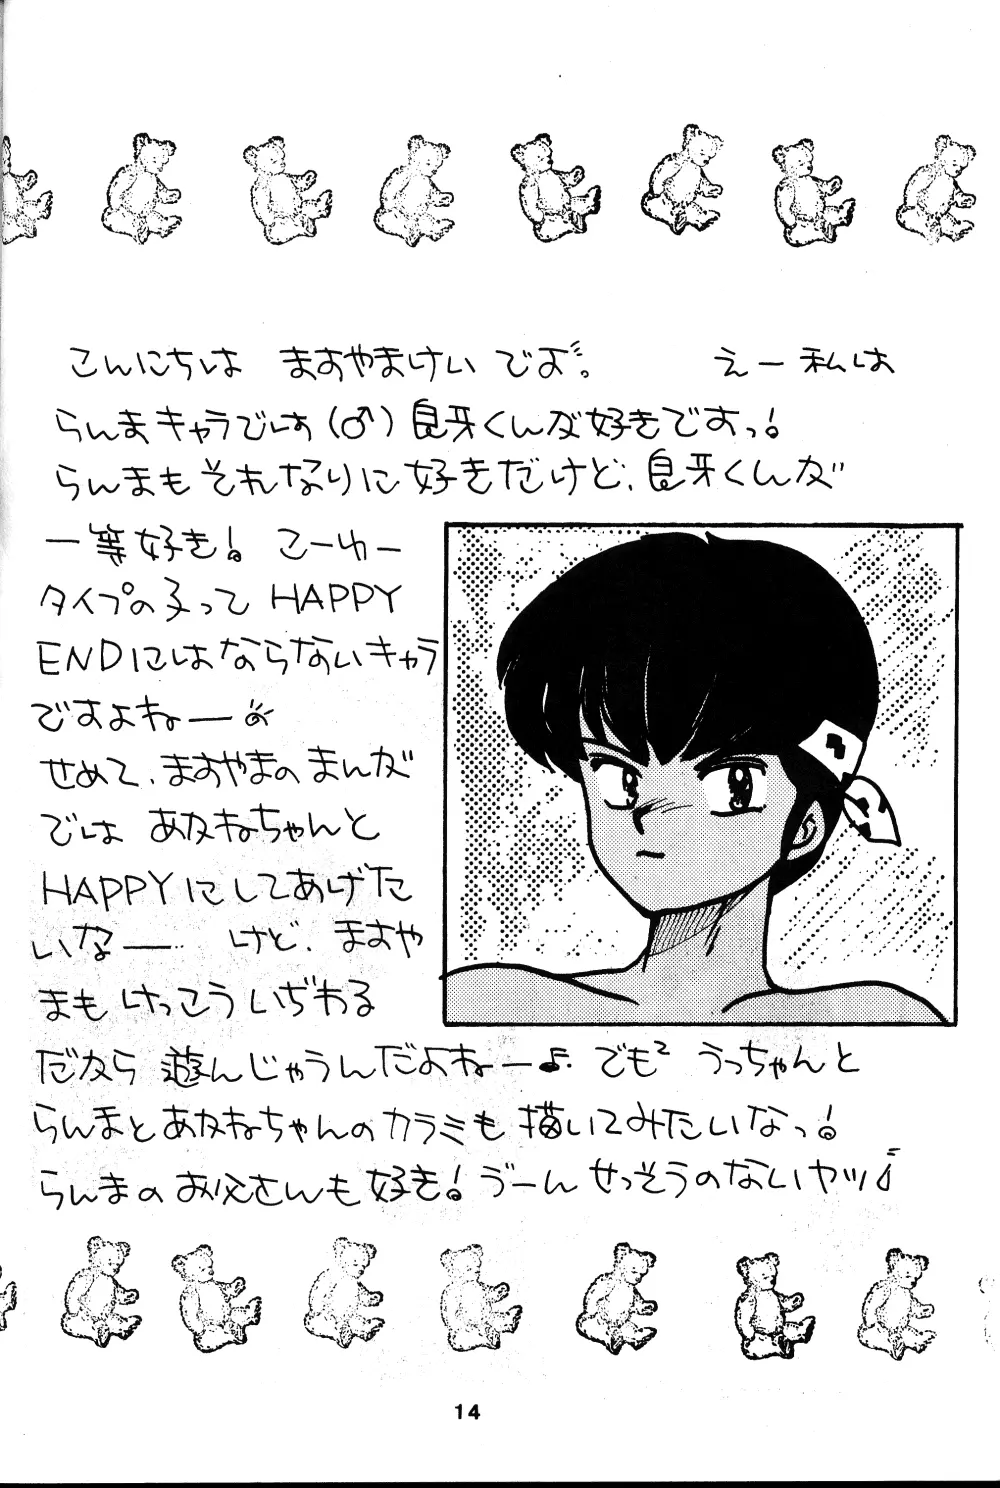 こんにちは ますやまけい でよ。 えー私は
らんまキャラでは(♂)良牙くんが好きですっ!
らんまもそれなりに好きだけど、良牙くんが
一等好き! こーゆー
タイプの子って HAPPY
ENDにはならないキャラ
ですよねー
せめて、ますやまのまんが
では あかねちゃんと
HAPPYにしてあげた
いなー けど、ますや
まも けっこういぢわる
だから 遊んじゃうんだよねー♪ でも² うっちゃんと
らんまとあかねちゃんのカラミも描いてみたいなっ!
らんまのお父さんも好き! う゛ーん せっそうのないヤツ♪
14